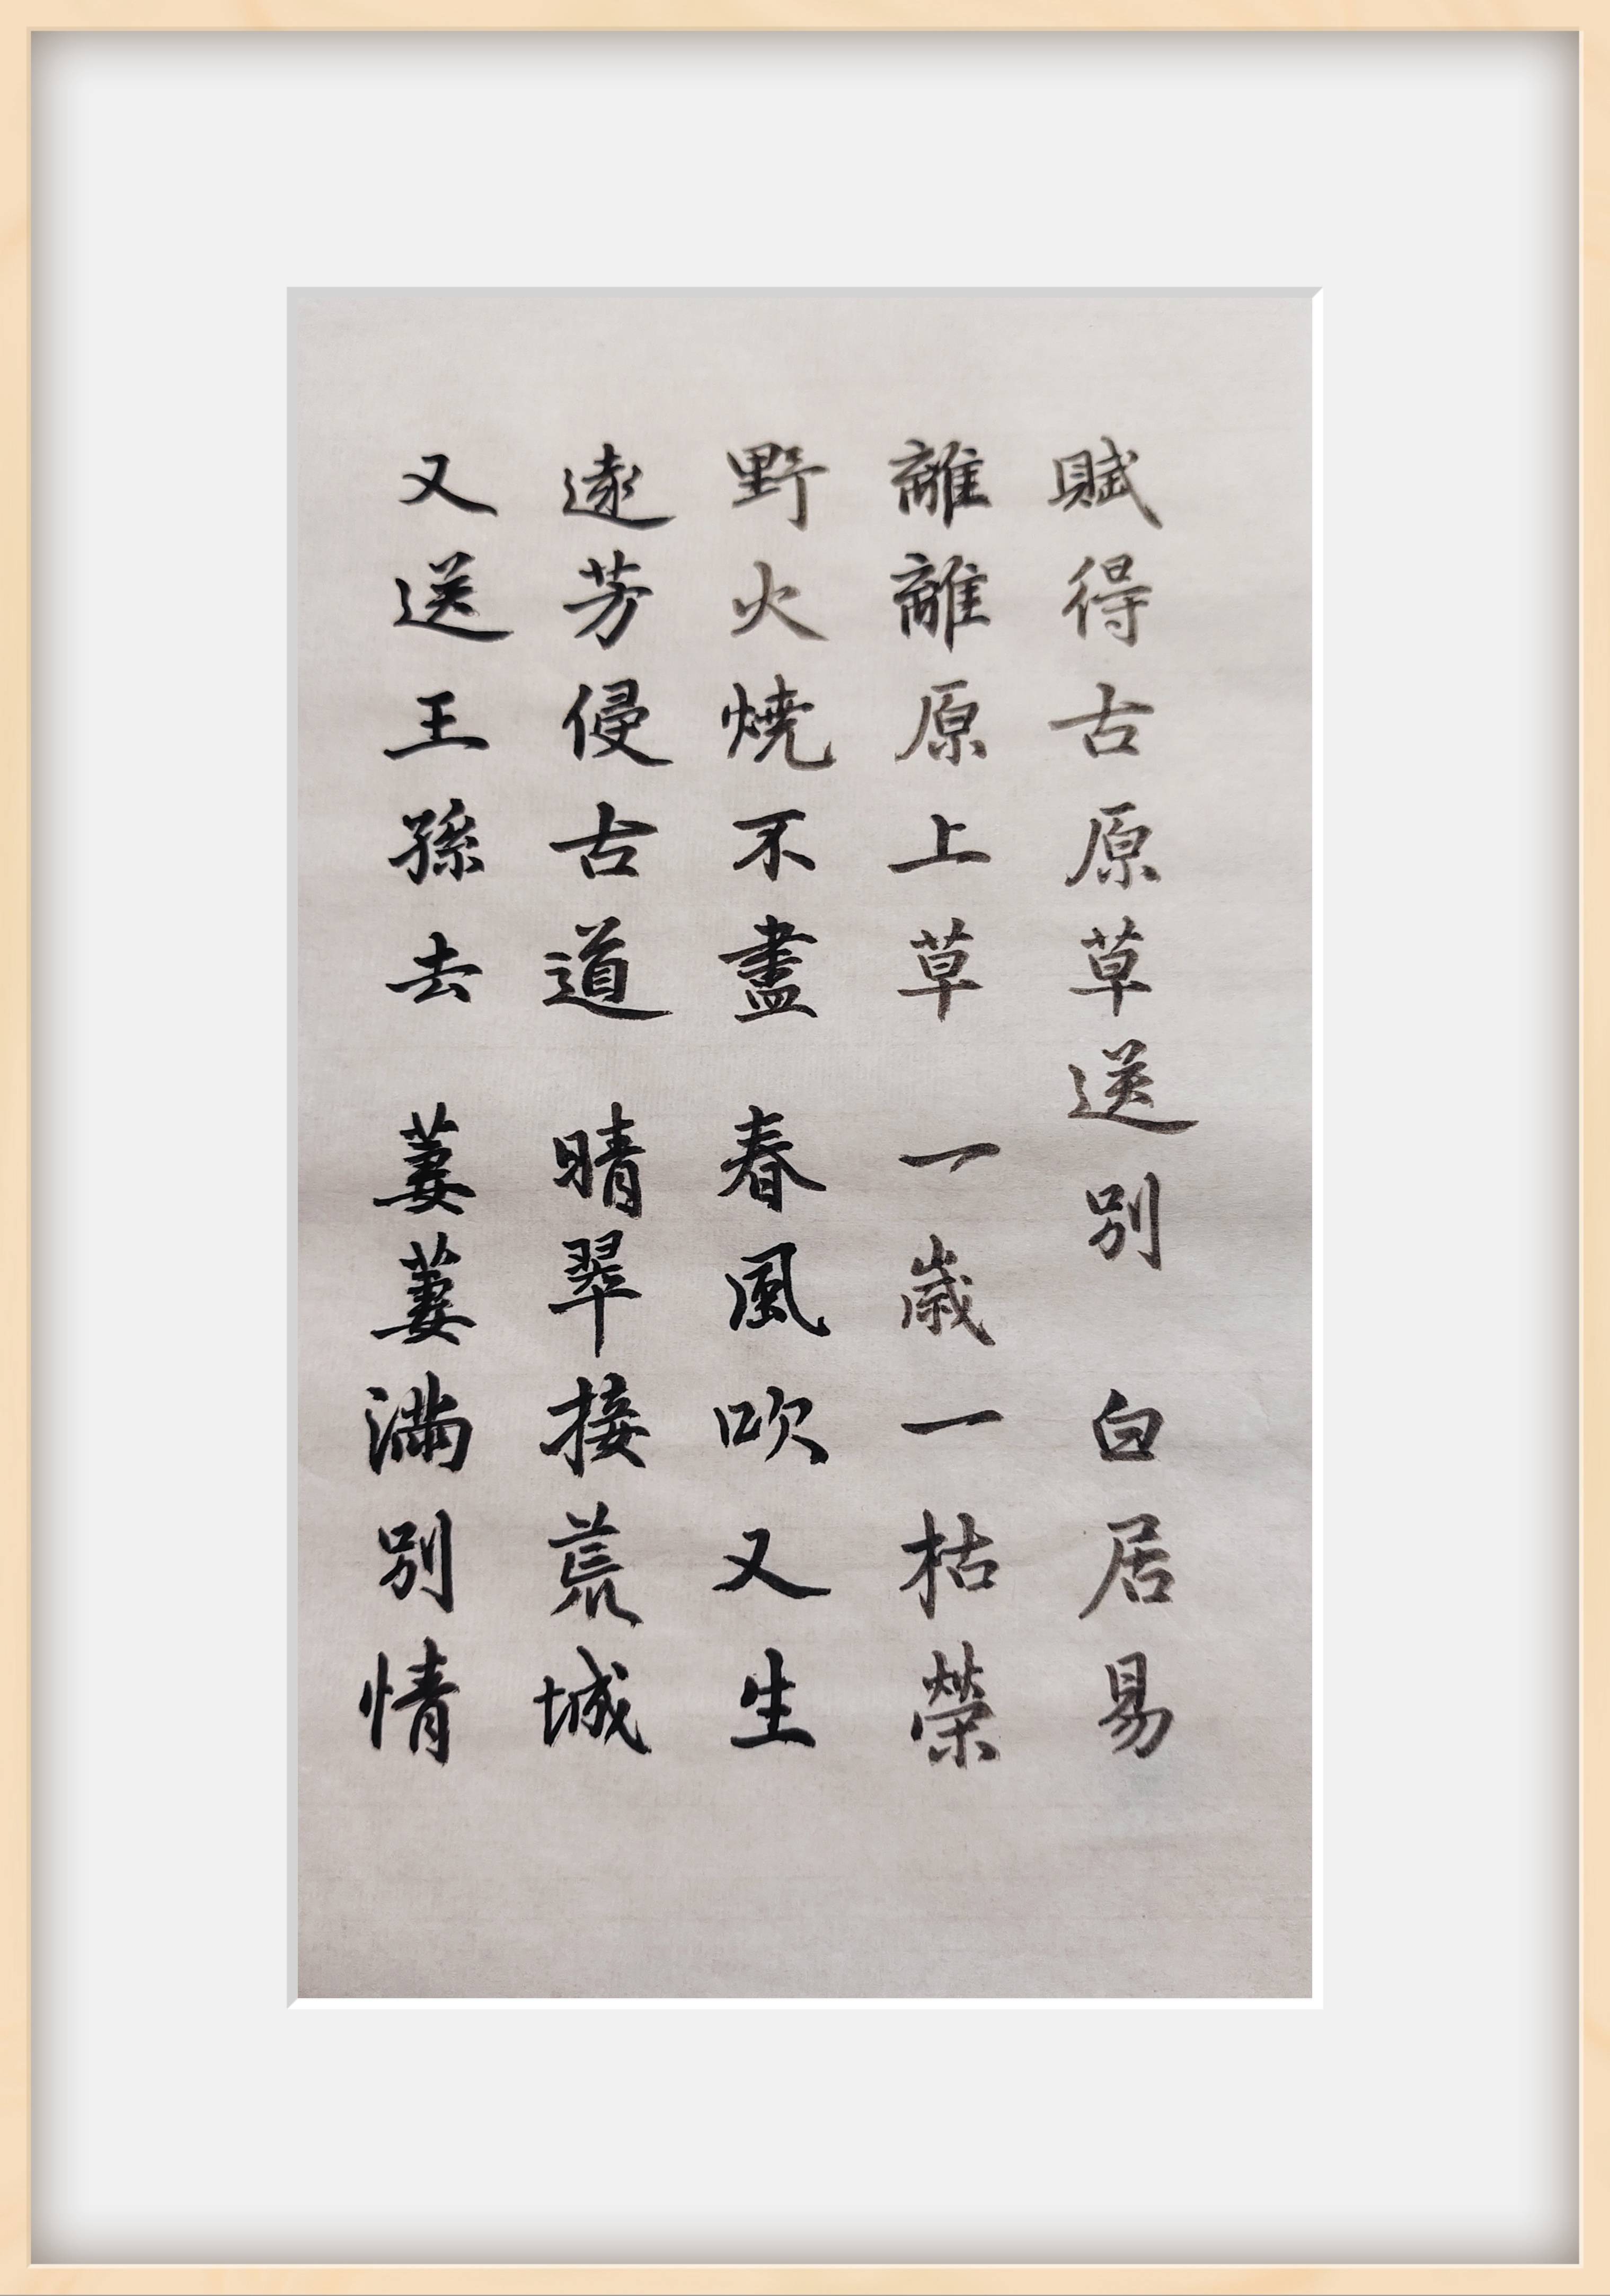 賦得古原草送別 白居易
離離原上草 一歲一枯榮
野火燒不盡 春風吹又生
遠芳侵古道 晴翠接荒城
又送王孫去 萋萋滿別情